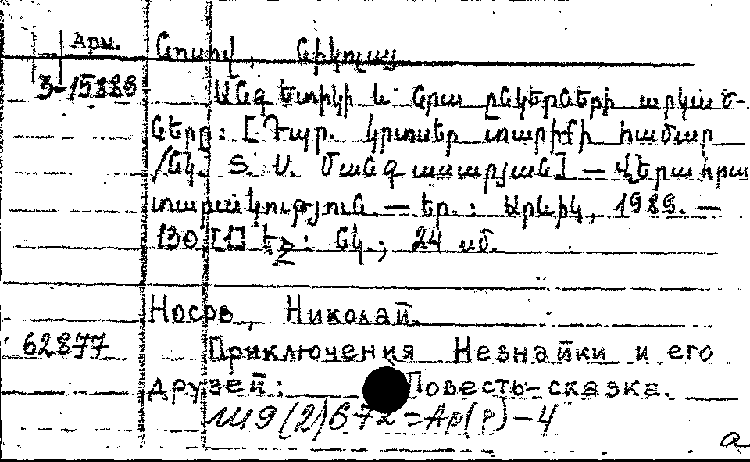 Арм.
Նոսով, Նիկոլայ
3-15886
Անգետիկի և նրա ընկերների արկած-
ները: [Դպր. կրտսեր տարիքի համար
/Նկ. Տ. Ս. Մանգասարյան] — Վերահրա
տարակություն. — Եր.: Արևիկ, 1986. —
130 [1] էջ: Նկ.; 24 սմ.
Носов, Николай.
62877 Приключения Незнайки и его
друзей: Повесть-сказка.
Ш9(2)672=Ар(Р)-4
а